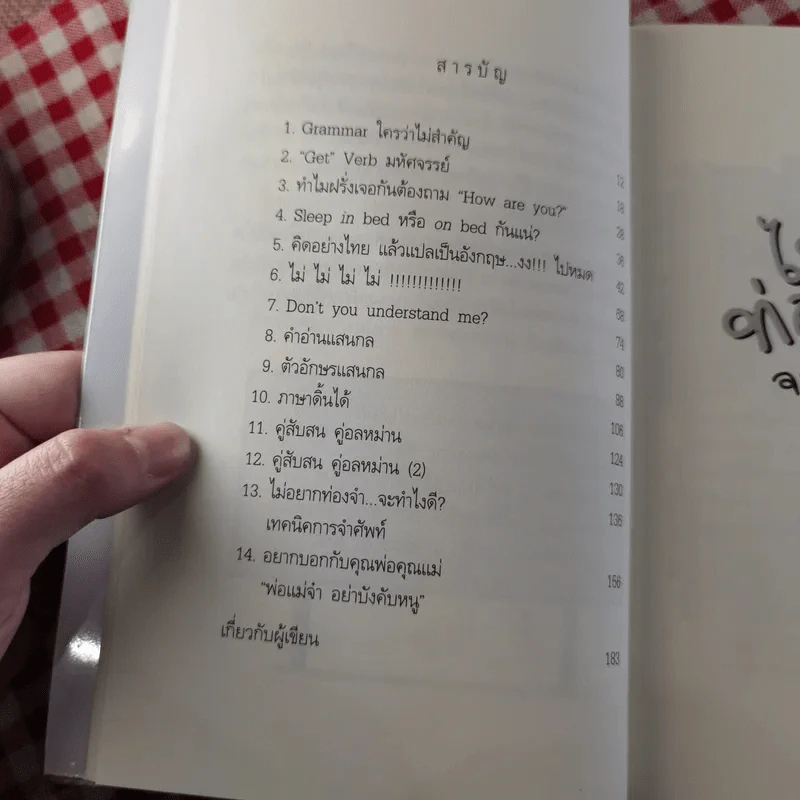 สารบัญ
1. Grammar ใครว่าไม่สำคัญ 12
2. "Get" Verb มหัศจรรย์ 18
3. ทำไมฝรั่งเจอกันต้องถาม "How are you?" 28
4. Sleep in bed หรือ on bed กันแน่? 38
5. คิดอย่างไทย แล้วแปลเป็นอังกฤษ...งง!!! ไปหมด 42
6. ไม่ ไม่ ไม่ ไม่ !!!!!!!!!!!!! 68
7. Don't you understand me? 74
8. คำอ่านแสนกล 80
9. ตัวอักษรแสนกล 88
10. ภาษาดิ้นได้ 106
11. คู่สับสน คู่อลหม่าน 124
12. คู่สับสน คู่อลหม่าน (2) 130
13. ไม่อยากท่องจำ...จะทำไงดี? 136
เทคนิคการจำศัพท์
14. อยากบอกกับคุณพ่อคุณแม่ 156
"พ่อแม่จ๋า อย่าบังคับหนู"
เกี่ยวกับผู้เขียน 183